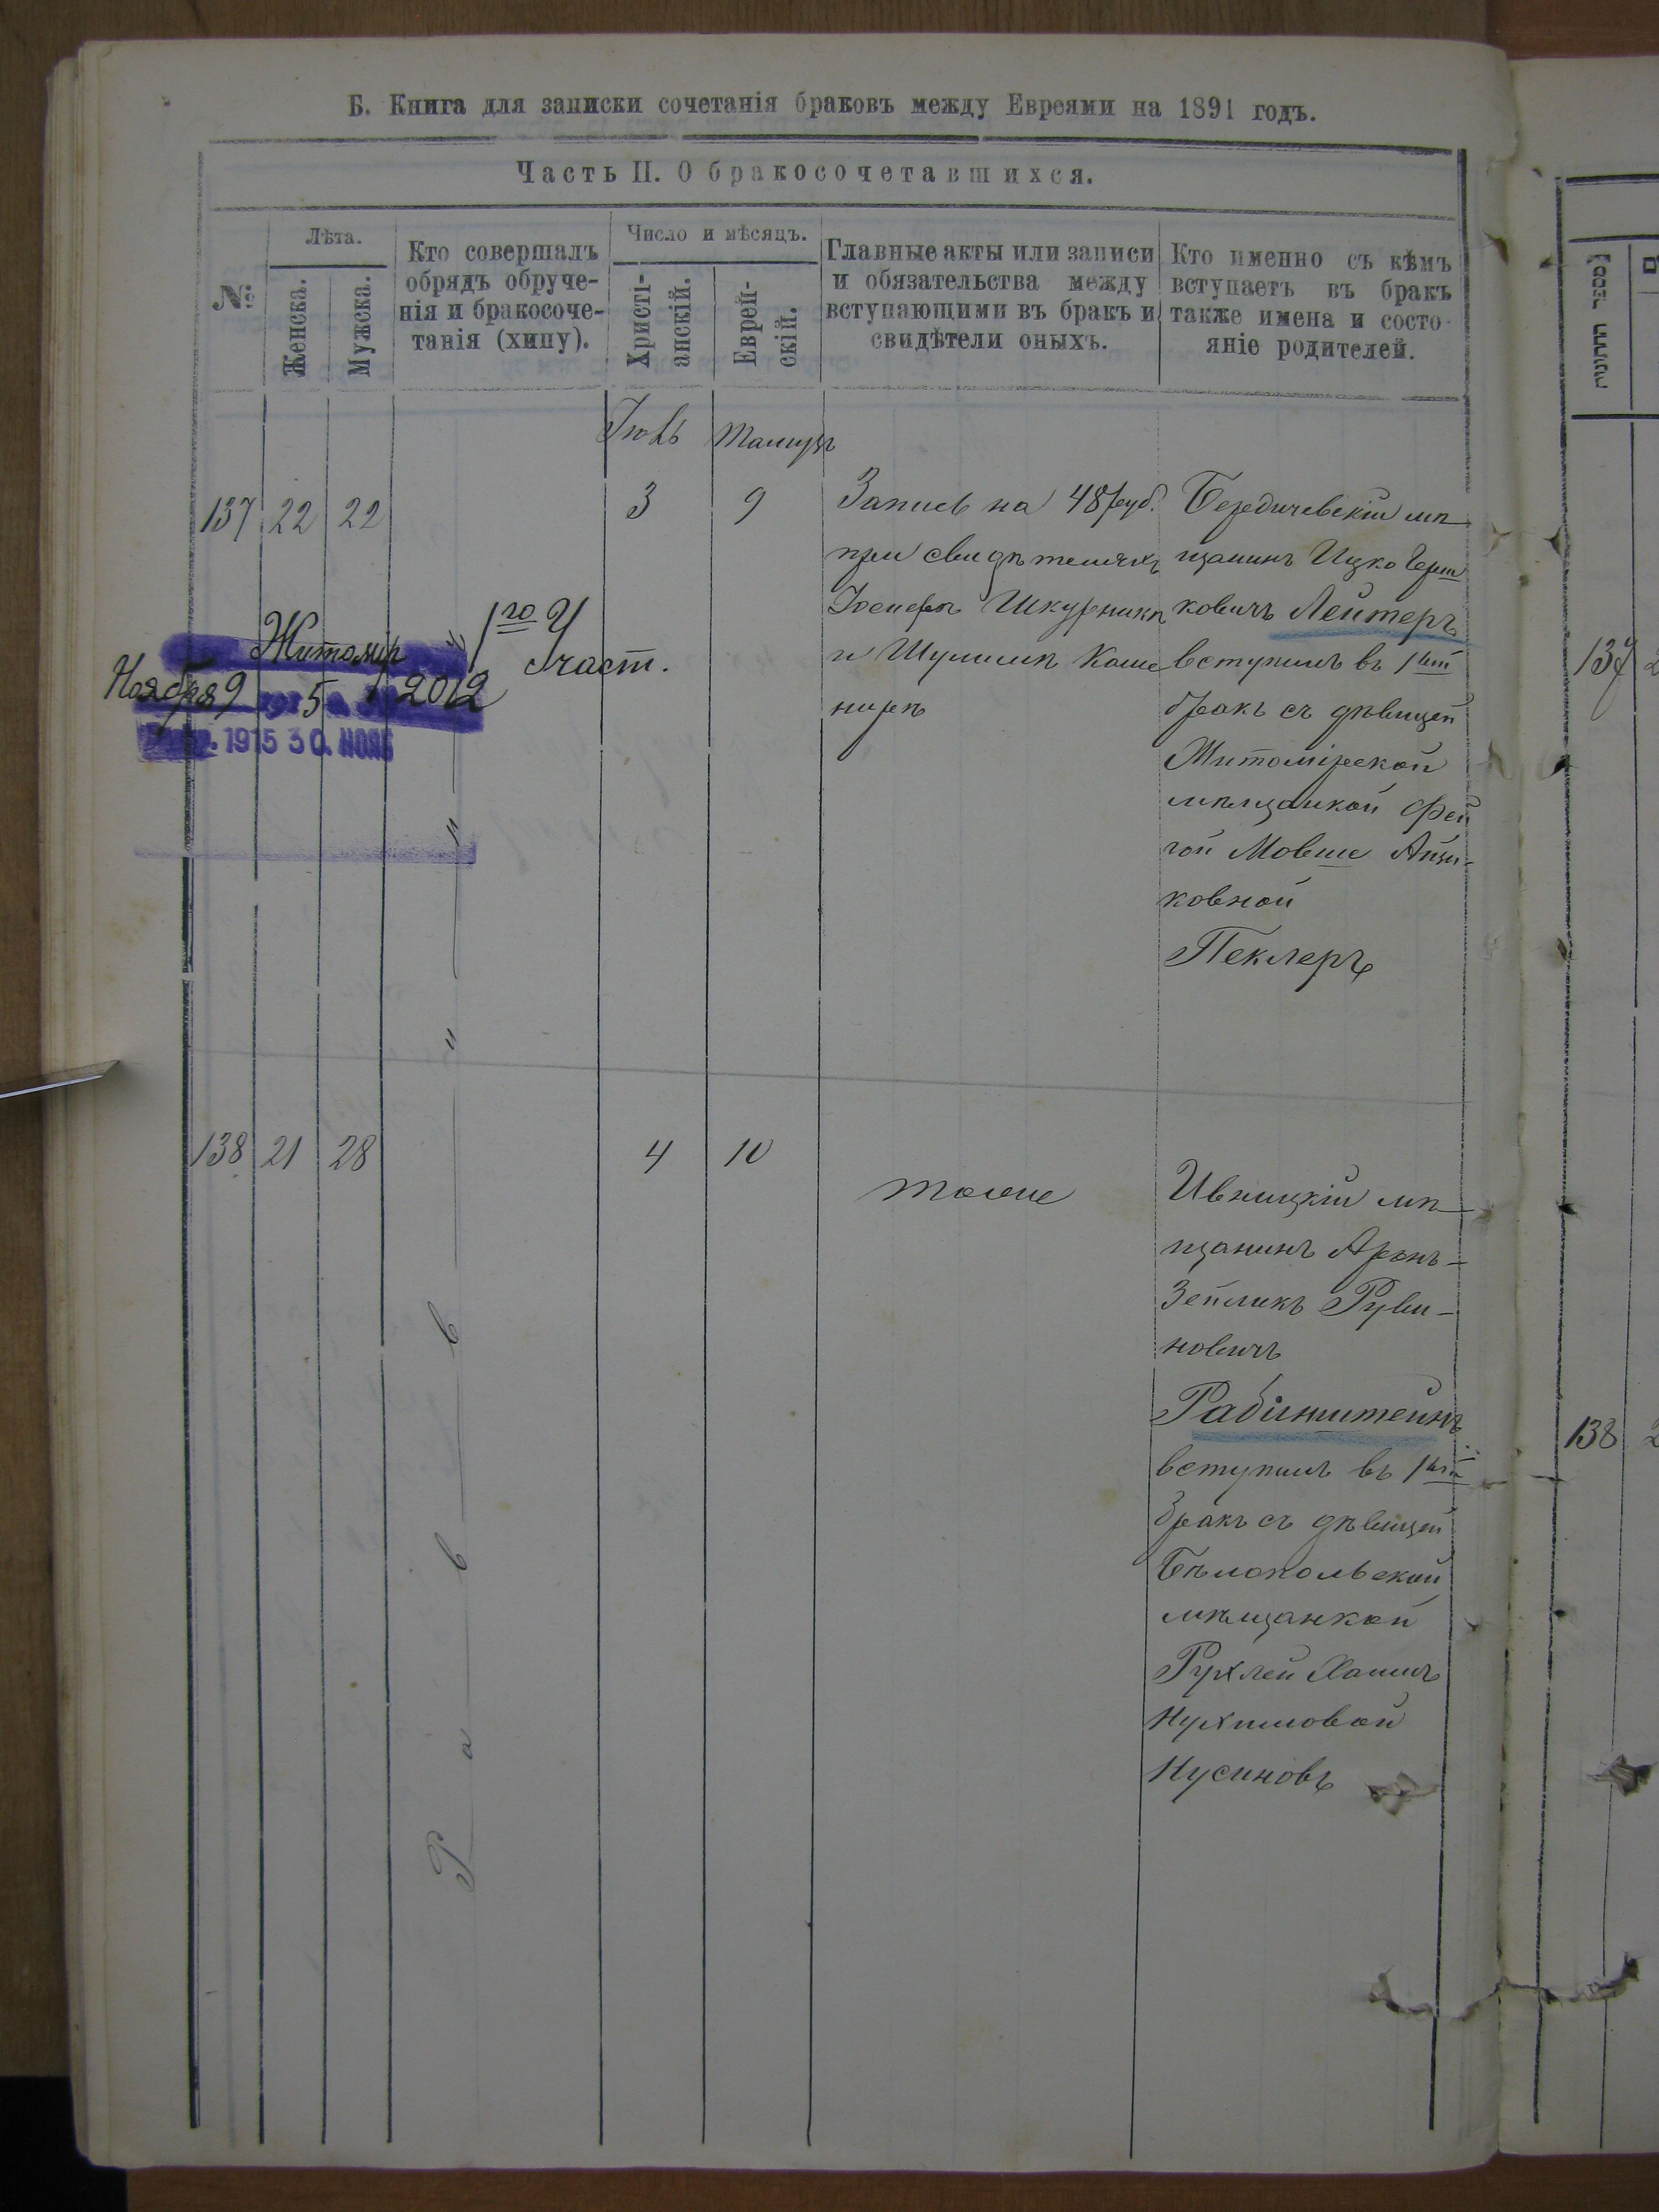 Б. Книга для записки сочетанія браковъ между Евреями на 1891 годъ.
Часть II. О бракосочетавшихся.
№
Лѣта.
Женска.
Мужска.
Кто совершалъ
обрядъ обруче-
нія и бракосоче-
танія (хипу).
Число и мѣсяцъ.
Христі-
анскій.
Еврей-
скій.
Главные акты или записи
и обязательства между
вступающими въ бракъ и
свидѣтели оныхъ.
Кто именно съ кѣмъ
вступаетъ въ бракъ
также имена и состо-
яніе родителей.
Тамузъ
137 22 22
3 9
Запись на 48 руб.
при свидѣтеляхъ
Іосифѣ Шкурникѣ
и Шулимѣ Каше
нирѣ
Бердичевскій мѣ
щанинъ Ицко Герш
ковичъ Лейтеръ
вступилъ въ 1ый
бракъ съ дѣвицей
Житомірской
мѣщанкой Фей
гой Мовше Айзи-
ковной
Пеклеръ
Житомір
1го Участ.
Ноября 9 1915 2012
1915 30. НОЯБ
138 21 28
4 10
тоже
Ивницкій мѣ
щанинъ Аронъ-
Зейликъ Руви-
новичъ
Рабинштейнъ
вступилъ въ 1ый
бракъ съ дѣвицей
Бѣлопольской
мѣщанкой
Рухлей
Нухимовой
Нусиновъ
Р а в в "
137
138